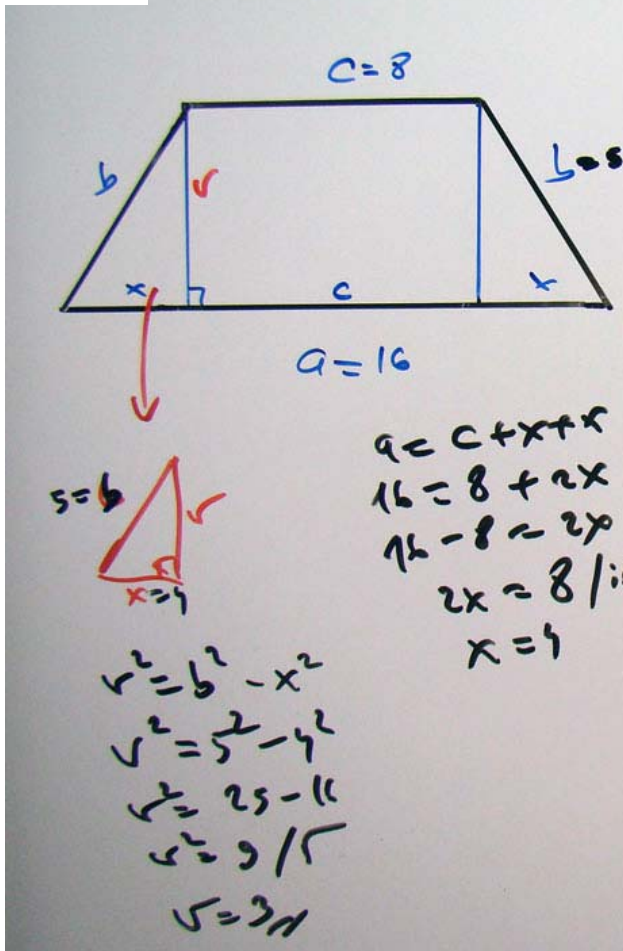 c = 8
b
v
b = 5
x
c
x
a = 16
5 = b
v
x = 4
a = c + x + x
16 = 8 + 2x
16 - 8 = 2x
2x = 8 /:
x = 4
v² = b² - x²
v² = 5² - 4²
v² = 25 - 16
v² = 9 /√
v = 3